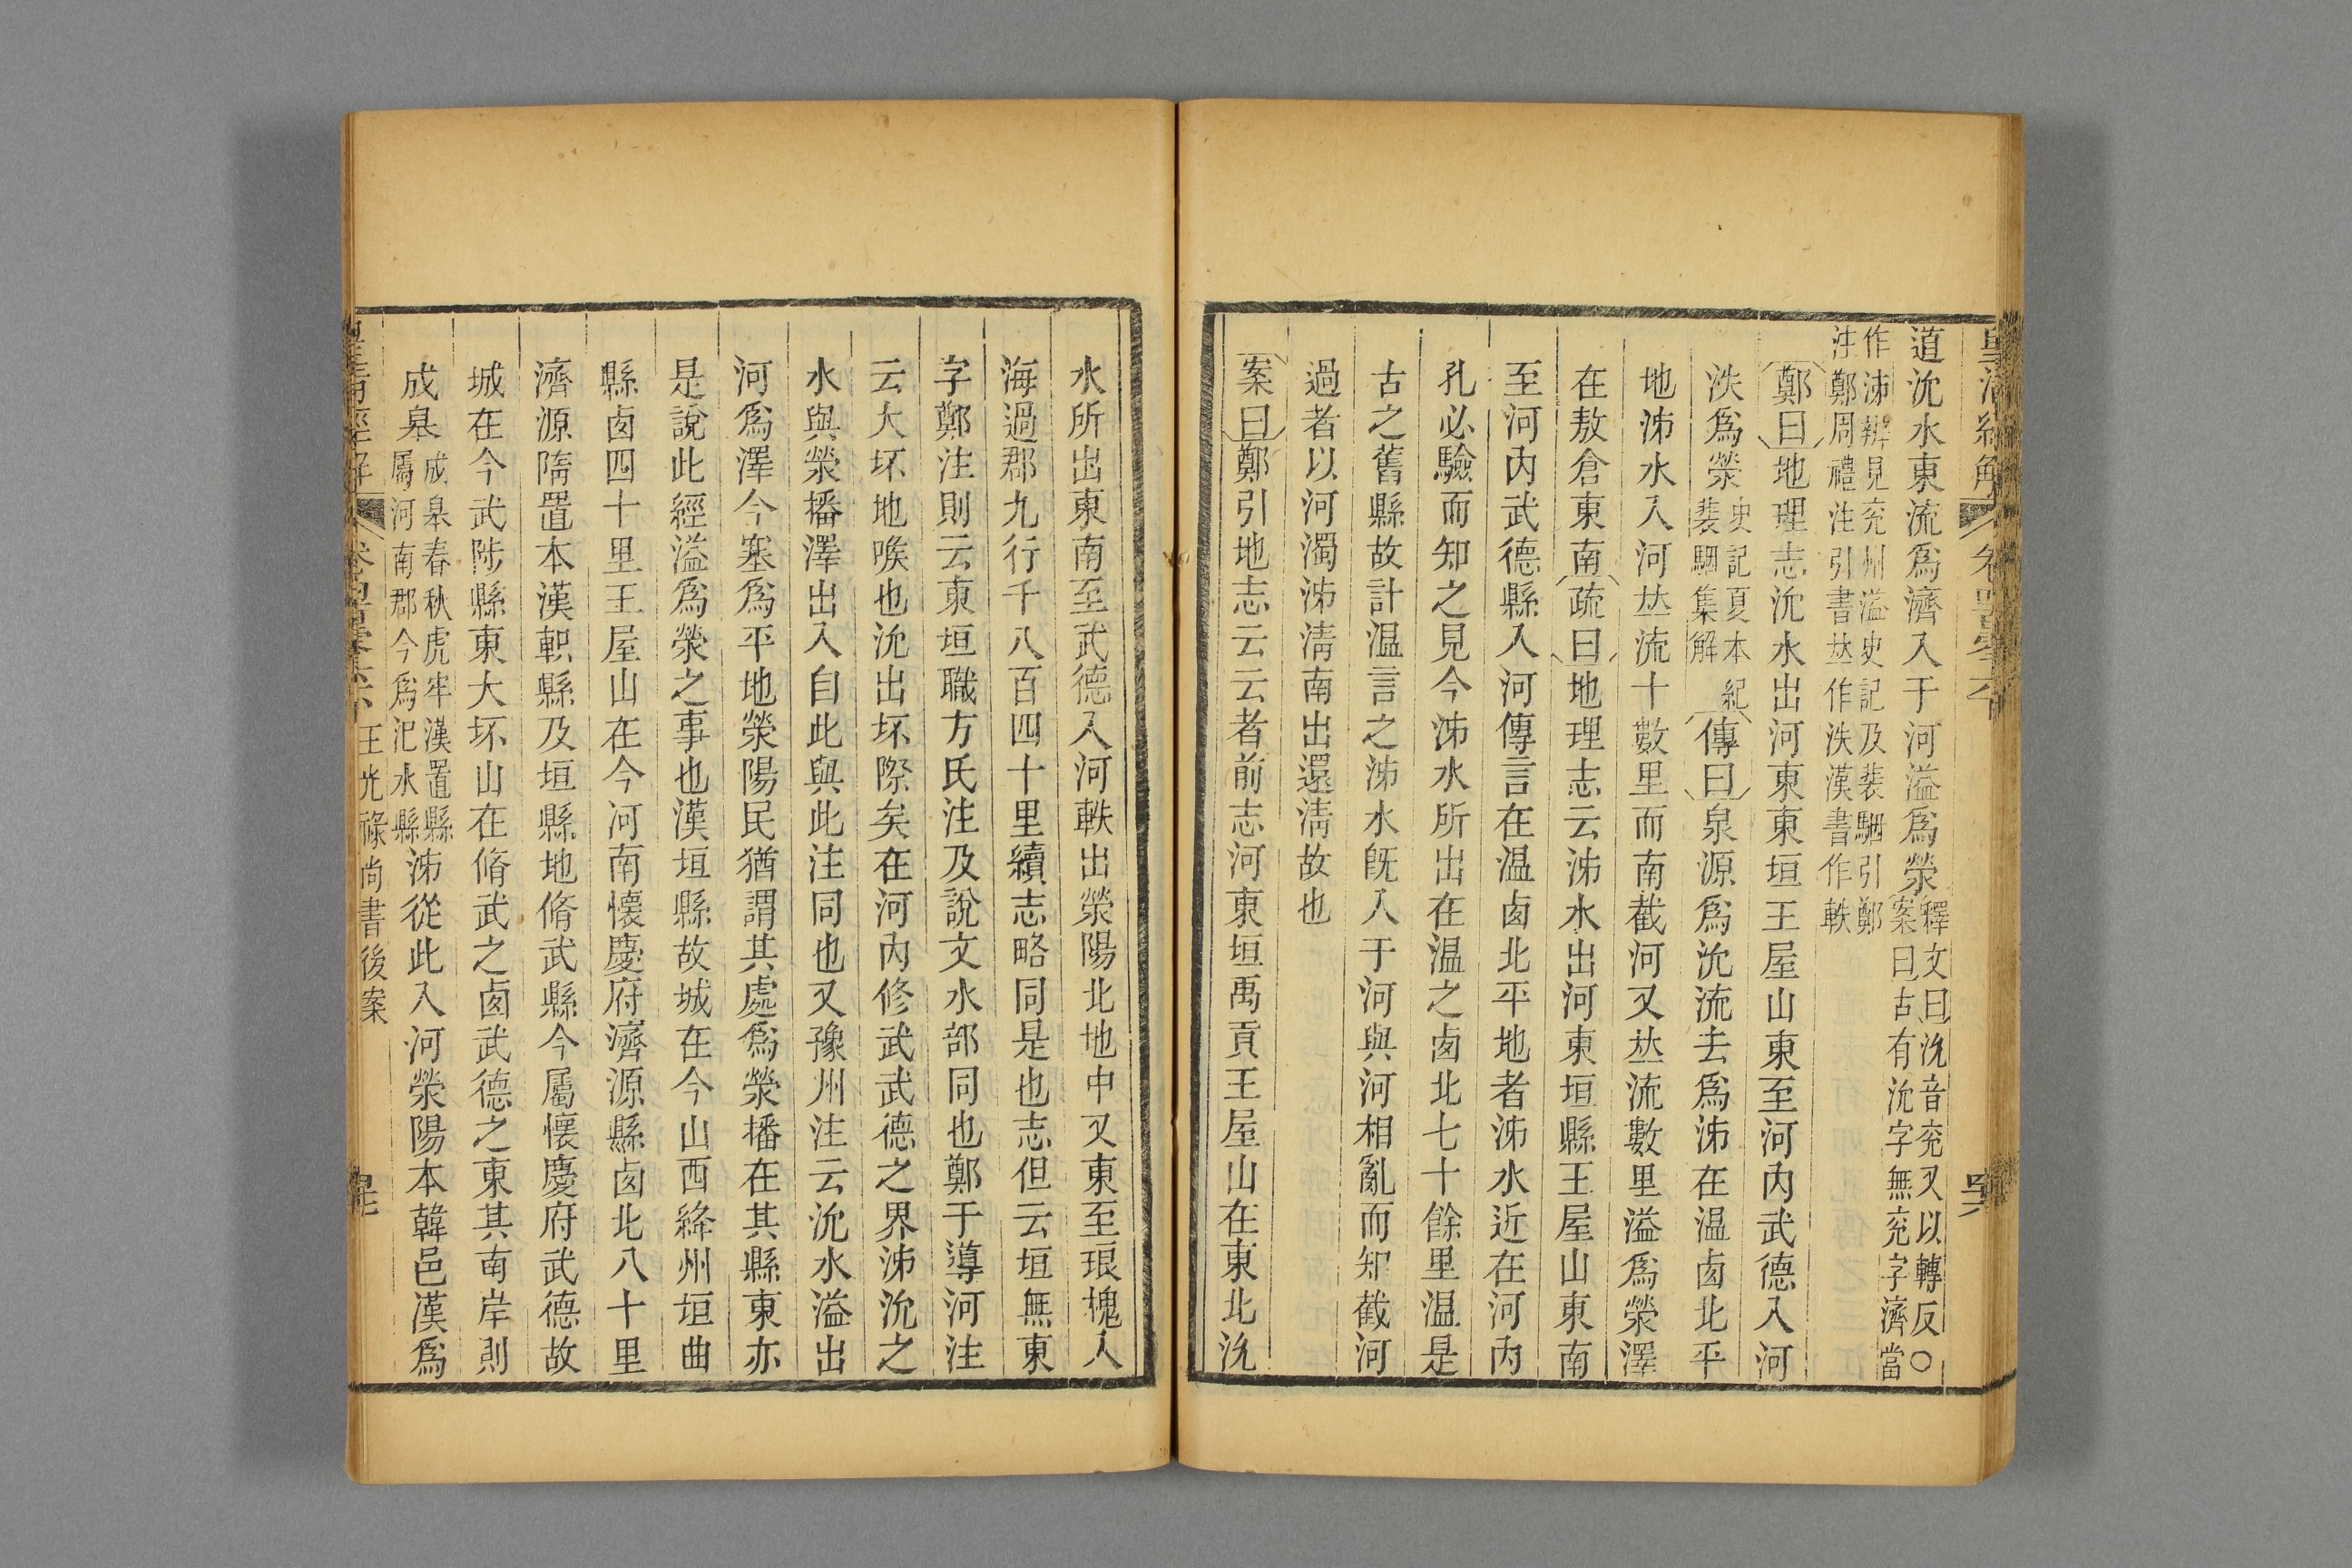 道沇水東流爲濟入于河溢爲滎釋文曰沇音兖又以轉反〇案曰古有沇字無兖字濟當
作泲辨見兖州溢史記及裴駰引鄭注鄭周禮注引書𠀤作泆漢書作軼
鄭曰地理志沇水出河東東垣王屋山東至河內武德入河
泆爲滎史記夏本紀裴駰集解傳曰泉源爲沇流去爲泲在温㢴北平
地泲水入河𠀤流十數里而南截河又𠀤流數里溢爲滎澤
在敖倉東南疏曰地理志云泲水出河東垣縣王屋山東南
至河內武德縣入河傳言在温㢴北平地者泲水近在河內
孔必驗而知之見今泲水所出在温之㢴北七十餘里温是
古之舊縣故計温言之泲水旣入于河與河相亂而知截河
過者以河濁泲淸南出還淸故也
案曰鄭引地志云云者前志河東垣禹貢王屋山在東北沇
水所出東南至武德入河軼出滎陽北地中又東至琅槐入
海過郡九行千八百四十里續志略同是也志但云垣無東
字鄭注則云東垣職方氏注及說文水部同也鄭于導河注
云大坏地喉也沇出坏際矣在河內修武武德之界泲沇之
水與滎播澤出入自此與此注同也又豫州注云沇水溢出
河爲澤今塞爲平地滎陽民猶謂其處爲滎播在其縣東亦
是說此經溢爲滎之事也漢垣縣故城在今山西絳州垣曲
縣㢴四十里王屋山在今河南懷慶府濟源縣㢴北八十里
濟源隋置本漢軹縣及垣縣地脩武縣今屬懷慶府武德故
城在今武陟縣東大坏山在脩武之㢴武德之東其南岸則
成皋成皋春秋虎牢漢置縣屬河南郡今爲汜水縣泲從此入河滎陽本韓邑漢爲
王光祿尚書後案